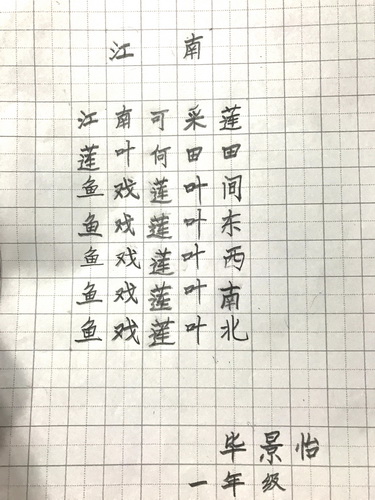 江南
江南可采莲
莲叶何田田
鱼戏莲叶间
鱼戏莲叶东
鱼戏莲叶西
鱼戏莲叶南
鱼戏莲叶北
毕景怡
一年级